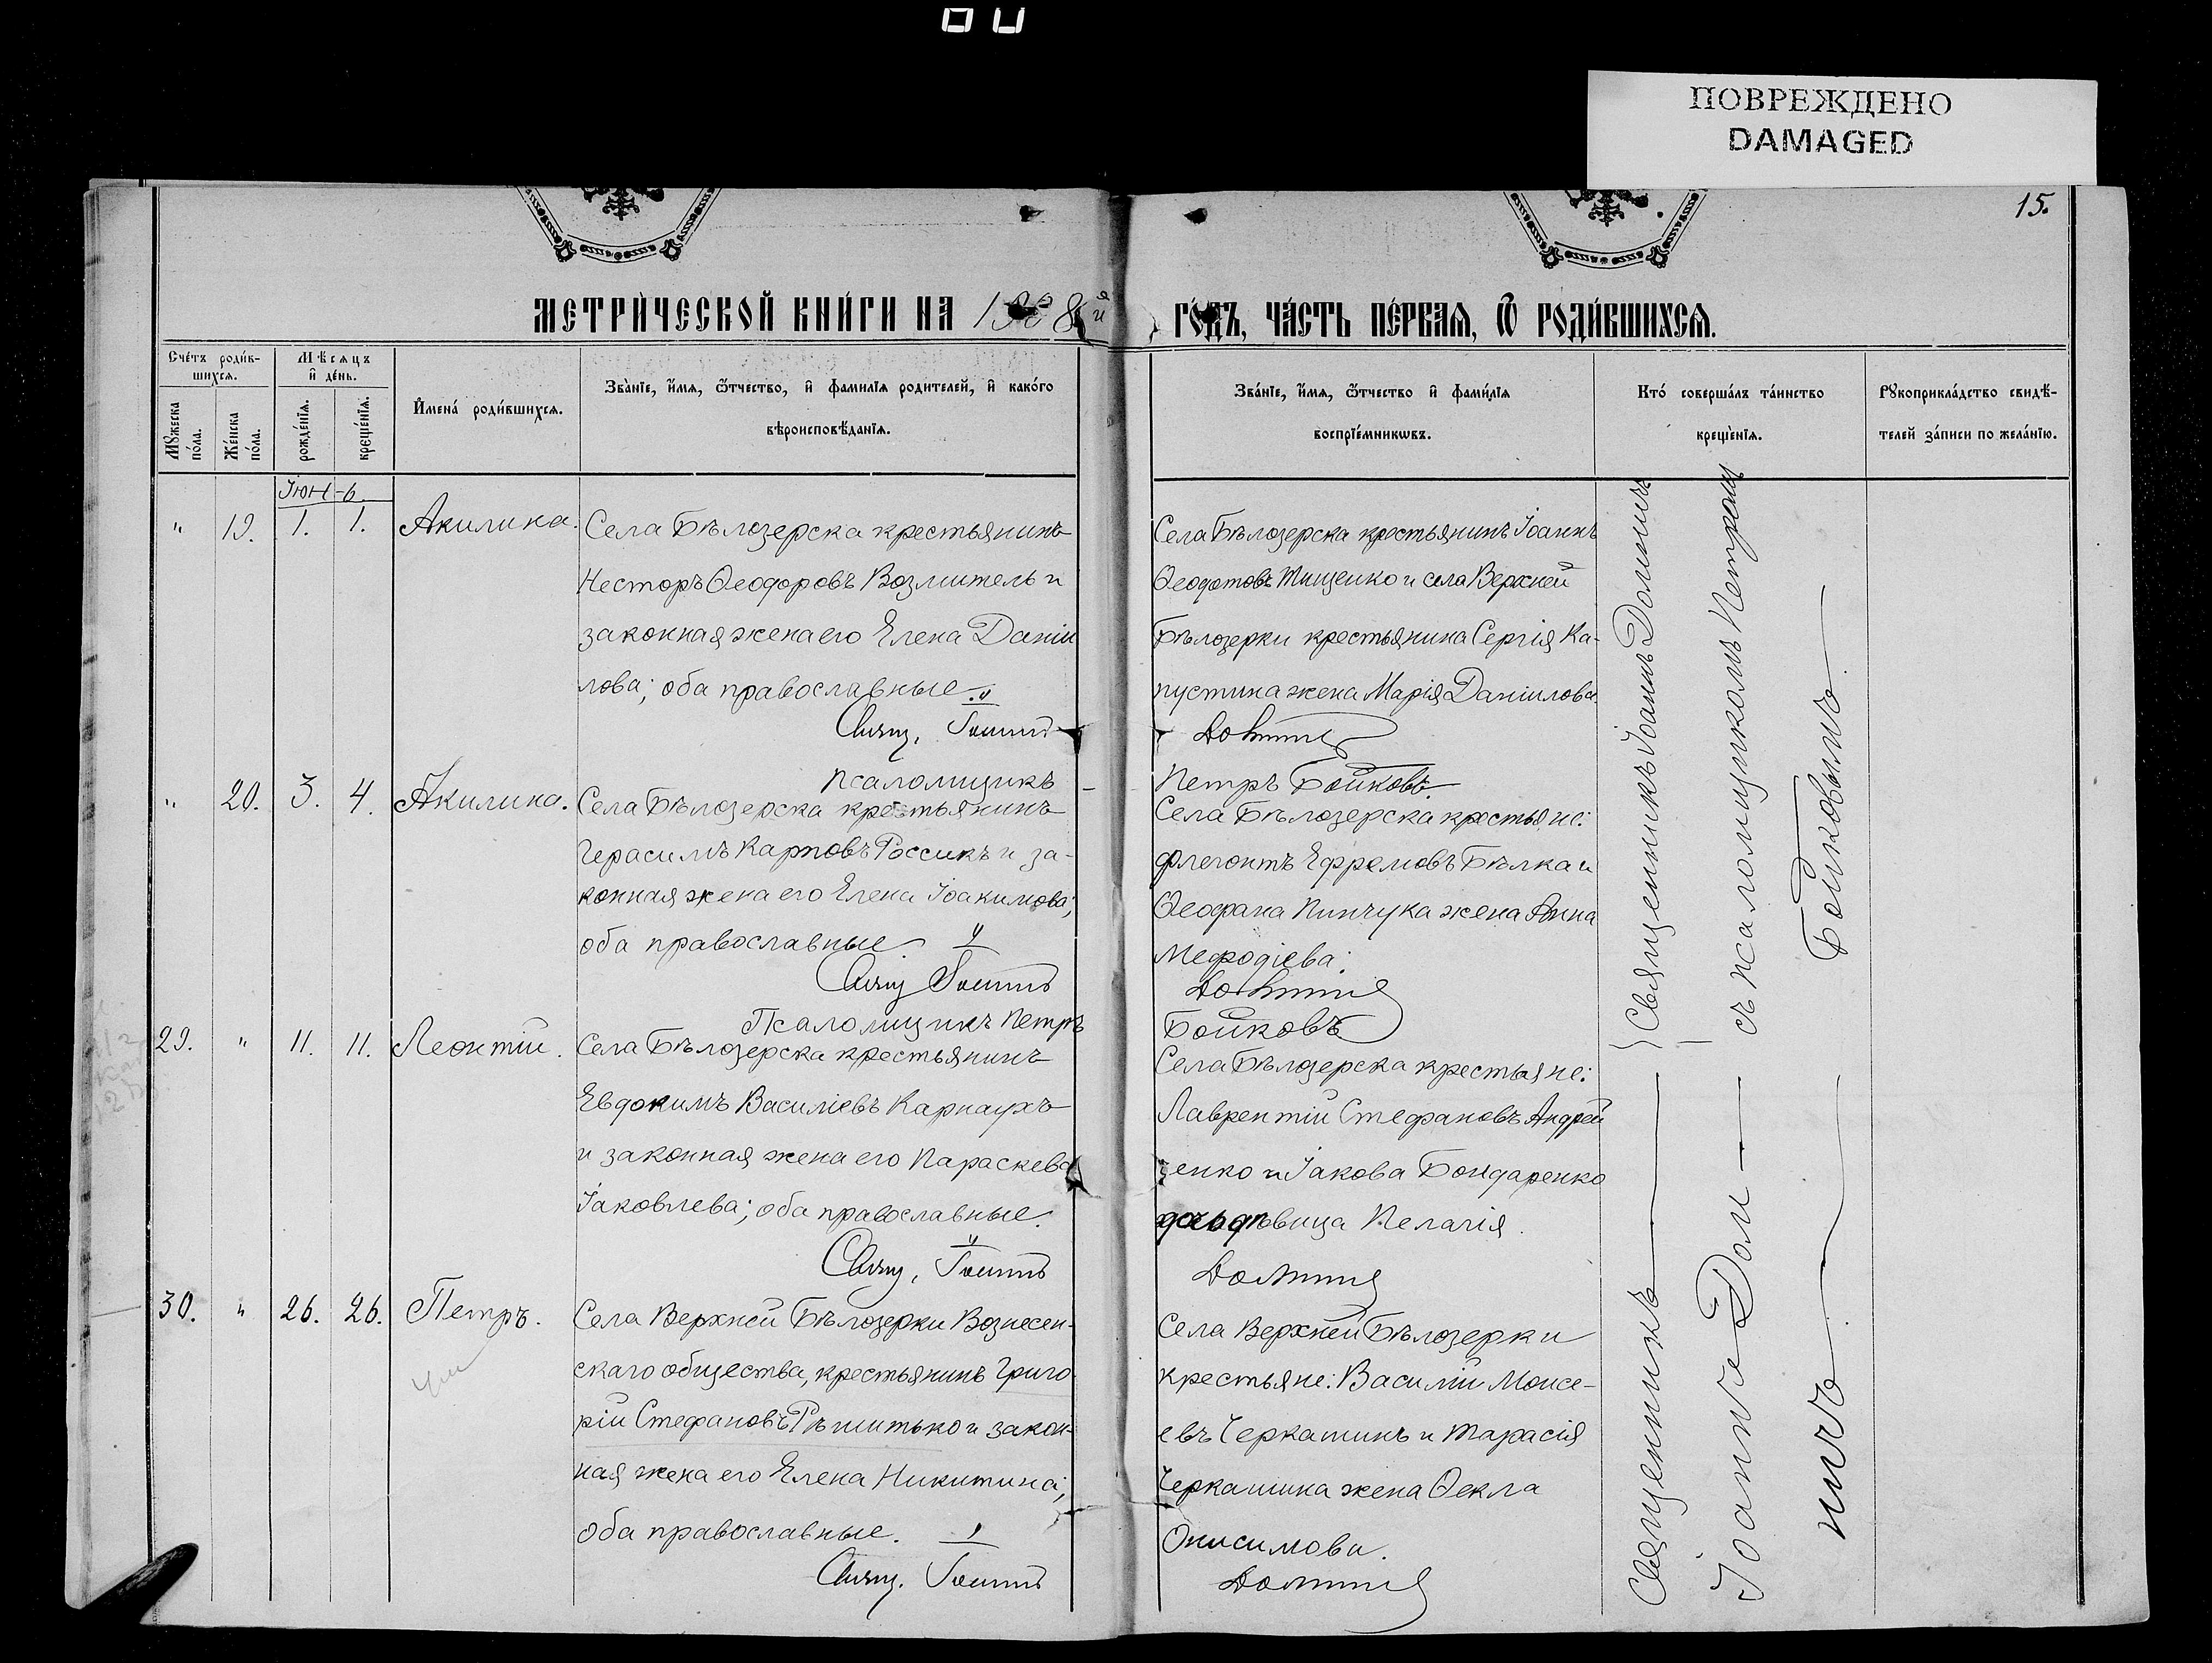 ПОВРЕЖДЕНО
DAMAGED
15.
МЕТРИ́ЧЕСКОЙ КНИ́ГИ НА 1908й ГО́ДЪ, ЧА́СТЬ ПЕ́РВАѦ, Ѿ РОДИ́ВШИХСѦ.
Сче́тъ роди́в-
шихсѧ.
Мѣ́сѧцъ
и҆ де́нь.
Мꙋжеска
по́ла.
Же́нска
по́ла.
рожде́нїѧ.
креще́нїѧ.
И҆мена́ роди́вшихсѧ.
Зва́нїе, и҆́мѧ, ѻ҆́тчество, и҆ фами́лїѧ роди́телей, и҆ како́гѡ
вѣроисповѣ́данїѧ.
Зва́нїе, и҆́мѧ, ѻ҆́тчество и҆ фами́лїѧ
воспрїе́мникѡвъ.
Кто̀ соверша́лъ та́инство
креще́нїѧ.
Рꙋкоприкла́дство свидѣ́-
телей за́писи по жела́нїю.
Iюнь.
" 19. 1. 1. Акилина.
Села Бѣлозерска крестьянинъ
Несторъ Ѳеодоровъ Возмитель и
законная жена его Елена Данiи
лова; оба православные.
Села Бѣлозерска крестьянинъ Iоаннъ
Ѳеодотовъ Тищенко и села Верхней
Бѣлозерки крестьянина Сергiя Ка-
пустина жена Марiя Данiилова.
Псаломщикъ Петръ Бойковъ
" 20. 3. 4. Акилина.
Села Бѣлозерска крестьянинъ
Герасимъ Карповъ Россикъ и за-
конная жена его Елена Iоакимова;
оба православные
Села Бѣлозерска крестьяне:
Флегонтъ Ефремовъ Бѣлка и
Ѳеофана Пинчука жена Анна
Меѳодiева.
Псаломщикъ Петръ Бойковъ
Священникъ Iоаннъ Долиничъ
съ псаломщикомъ Петромъ
Бойковымъ
29. " 11. 11. Леонтiй.
Села Бѣлозерска крестьянинъ
Евдокимъ Василiевъ Карнаухъ
и законная жена его Параскева
Iаковлева; оба православные.
Села Бѣлозерска крестьяне:
Лаврентiй Стефановъ Андрей
ценко и Iакова Бондаренко
дѣвица Пелагiя.
30. " 26. 26. Петръ.
Села Верхней Бѣлозерки Вознесен-
скаго общества, крестьянинъ Григо
рiй Стефановъ Рѣшитько и закон-
ная жена его Елена Никитина;
оба православные.
Села Верхней Бѣлозерки
крестьяне: Василiй Моисе-
евъ Черкашинъ и Тарасiя
Черкашина жена Ѳекла
Онисимова.
Священникъ
Iоаннъ Доли
ничъ